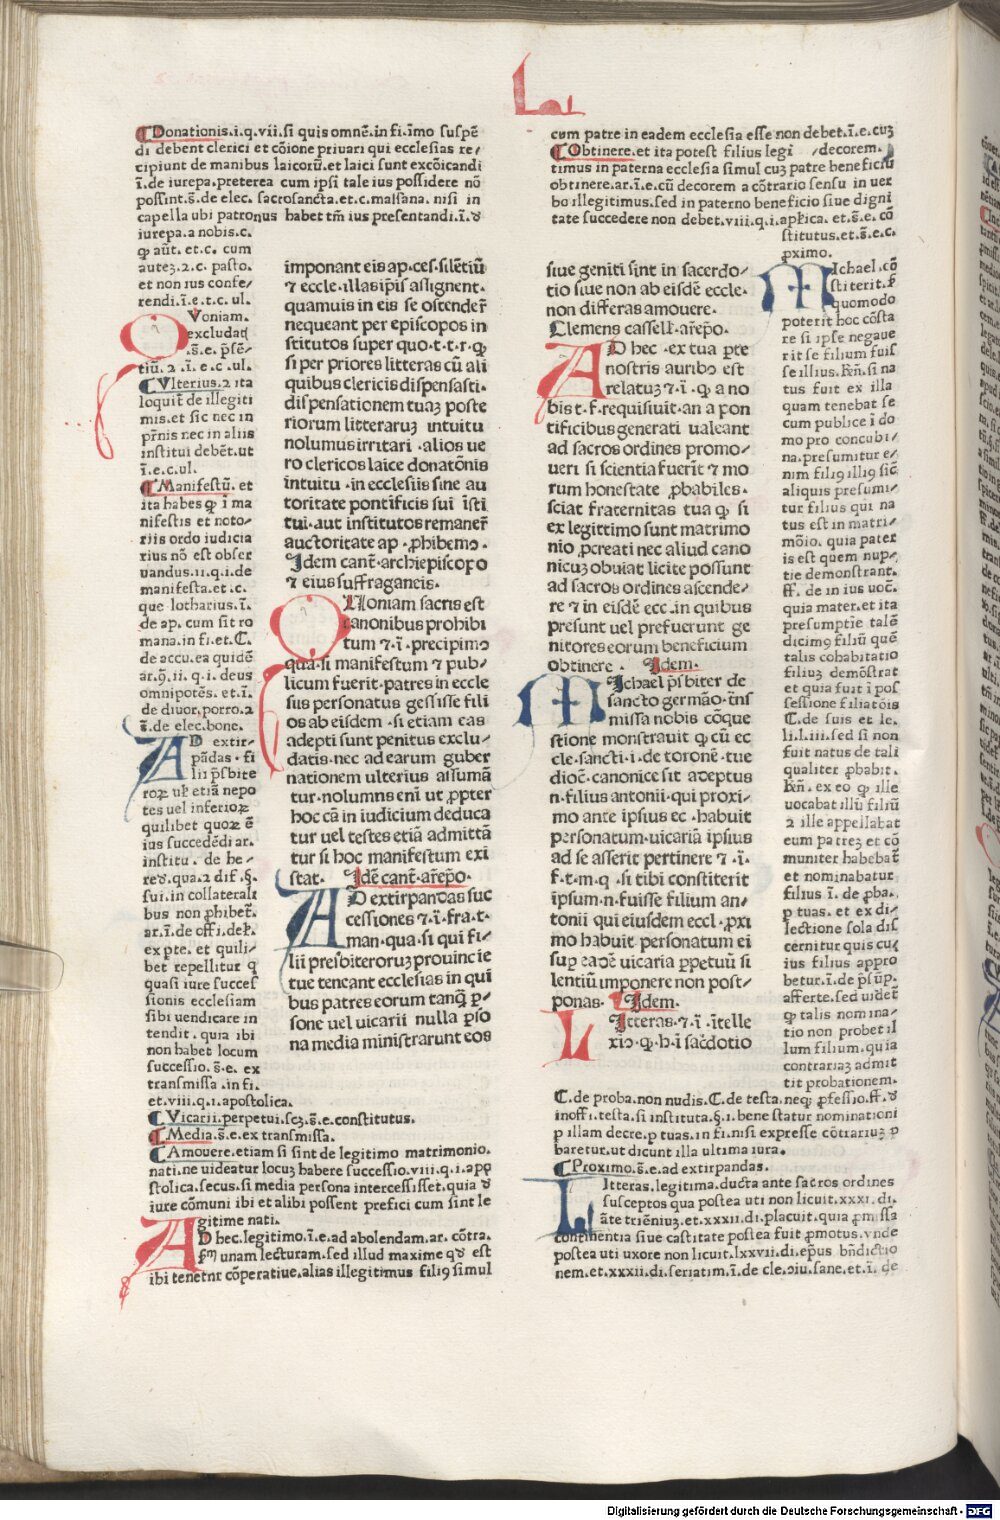 Donationis.i.q.vii.si quis omnē.in fi.īmo suspē
di debent clerici et cōione priuari qui ecclesias re/
cipiunt de manibus laicorū.et laici sunt excōicandi
ī.de iurepa.preterea cum ipsi tale ius possidere nō
possint.s̄.de elec. sacrosancta.et.c.massana. nisi in
capella ubi patronus habet tm̄ ius presentandi.ī.
iurepa.a nobis.c.
et.c. cum
autez.2.c. pasto.
et non ius confe/
rendi.ī.e.t.c. ul.
Voniam.
excludat
.s̄.e. p̄sē/
tiū.2.ī.e.c.ul.
Vlterius.2 ita
loquit̄ de illegiti
mis.et sic nec in
pr̄nis nec in aliis
institui debēt.ut
ī.e.c.ul.
Manifestū. et
ita habes ꝙ ī ma
nifestis et noto/
riis ordo iudicia
rius nō est obser
uandus.ii.q.i.de
manifesta.et.c.
que lotharius.ī.
de ap. cum sit ro
mana.in fi.et.C.
de accu.ea quidē
ar.9.ii.q.i. deus
omnipotēs. et.ī.
de diuor.porro.2
s̄.de elec.bone.
AD extir/
pādas. fi
lii p̄sbite
roꝝ ul̄ etiā nepo
tes uel inferioꝝ
quilibet quoꝝ ē
ius succedēdi ar.
institu. de he/
red.qua.2 dif.§.
sui.in collaterali
bus non ꝓhibet̄.
ar.ī.de offi.del̄.
ex pte. et quili/
bet repellitur q
quasi iure succes
sionis ecclesiam
sibi uendicare in
tendit. quia ibi
non habet locum
successio. s̄.e. ex
transmissa.in fi.
et.viii.q.i.apostolica.
Vicarii.perpetui.scꝫ.s̄.e.constitutus.
Media.s̄.e.ex transmissa.
Amouere.etiam si sint de legitimo matrimonio.
nati.ne uideatur locuꝫ habere successio.viii.q.i.app
stolica.secus.si media persona intercessisset.quia
iure cōmuni ibi et alibi possent prefici cum sint le
gitime nati.
AD hec.legitimo.ī.e.ad abolendam.ar. cōtra.
unam lecturam.sed illud maxime est
ibi tenetur cōperatiue.alias illegitimus fili9 simul
imponant eis ap.ces.silētiū
⁊ eccle.illas ip̄is assignent.
quamuis in eis se ostender̄
nequeant per episcopos in
stitutos super quo.t.t.r.ꝙ
si per priores litteras cū ali
quibus clericis dispensasti.
dispensationem tuaꝫ poste
riorum litteraruꝫ intuitu
nolumus irritari.alios ue
ro clericos laice donatōnis
intuitu.in ecclesiis sine au
toritate pontificis sui īsti
tui.aut institutos remaner̄
auctoritate ap.ꝓhibemꝰ.
Idem cant̄.archiepiscopo
⁊ eius suffraganeis.
QUoniam sacris est
canonibus prohibi
tum ⁊.ī.precipimꝰ
qua.si manifestum ⁊ pub/
licum fuerit.patres in eccle
siis personatus gessisse fili
os ab eisdem.si etiam eas
adepti sunt penitus exclu/
datis.nec ad earum guber
nationem ulterius assumā
tur.nolumus enī ut ꝓpter
hoc cā in iudicium deduca
tur uel testes etiā admittā
tur si hoc manifestum exi
stat. Idē cant̄.ar̄epo.
AD extirpandas suc
cessiones ⁊.ī.fra.t.
man.qua.si qui fi/
lii presbiteroruꝫ prouincie
tue teneant ecclesias in qui
bus patres eorum tanꝙ p/
sone uel uicarii nulla pso
na media ministrarunt eos
cum patre in eadem ecclesia esse non debet.ī.e.cuꝫ
decorem.
Obtinere.et ita potest filius legi
timus in paterna ecclesia simul cuꝫ patre beneficiū
obtinere.ar.ī.e.cū decorem a cōtrario sensu in uer
bo illegitimus.sed in paterno beneficio siue digni
tate succedere non debet.viii.q.i.apl̄ica. et.s̄.e. cō
stitutus.et.s̄.e.c.
ꝓximo.
siue geniti sint in sacerdo/
tio siue non ab eisdē eccle.
non differas amouere.
Clemens cassell̄.ar̄epo.
AD hec.ex tua pte
nostris auribꝰ est
relatuꝫ ⁊.ī.ꝙ a no
bis t.f.requisiuit.an a pon
tificibus generati ualeant
ad sacros ordines promo/
ueri si scientia fuerīt ⁊ mo
rum honestate ꝓbabiles.
sciat fraternitas tua ꝙ si
ex legittimo sunt matrimo
nio ꝓcreati nec aliud cano
nicuꝫ obuiat licite possunt
ad sacros ordines ascende/
re ⁊ in eisdē ecc.in quibus
presunt uel prefuerunt ge
nitores eorum beneficium
obtinere. Idem.
MIchael p̄sbiter de
sancto germāo.tr̄ns
missa nobis cōque
stione monstrauit ꝙ cū ec
cle.sancti.i.de toronē.tue
dioc̄.canonice sit adeptus
n.filius antonii.qui proxi/
mo ante ipsius ec.habuit
personatum.uicariā ipsius
ad se asserit pertinere ⁊.ī.
f.t.m.ꝙ.si tibi constiterit
ipsum.n.fuisse filium an/
tonii qui eiusdem eccl.ꝓxi
mo habuit personatum ei
suꝑ eadē uicaria ꝑpetuū si
lentiū imponere non post/
ponas. Idem.
LItteras.⁊.ī.itelle
xiꝰ.ꝙ.h.i sacdotio
MIchael.cō
stiterit.ſ
quomodo
poterit hoc cōsta
re si ipse negaue
rit se filium fuis
se illius.Rn̄.si na
tus fuit ex illa
quam tenebat se
cum publice ī do
mo pro concubi/
na.presumitur e/
nim fili9 illi9 siē
aliquis presumi/
tur filius qui na
tus est in matri/
mōio. quia pater
is est quem nup/
tie demonstrant.
ff. de in ius uoc̄.
quia mater.et ita
presumptie talē
dicim9 filiū quē
talis cohabitatio
filiuꝫ demōstrat
et quia fuit ī pos
sessione filiatōis
C.de suis et le.
li.l.iii.sed si non
fuit natus de tali
qualiter ꝓbabit.
Rn̄. ex eo ꝙ ille
uocabat illū filiū
2 ille appellabat
eum patreꝫ et cō
muniter habebat̄
et nominabatur
filius ī. de ꝓba.
p tuas. et ex di/
lectione sola dis
cernitur quis cu/
ius filius appro
betur.ī.de p̄sūp.
afferte.sed uidet̄
ꝙ talis nomina/
tio non probet il
lum filium.quia
contrariaꝫ admit
tit probationem.
C.de proba.non nudis.C.de testa.neqꝫ ꝓfessio.ff.
inoffi.testa.si instituta.§.i.bene statur nominationi
p illam decre.p tuas.in fi.nisi expresse cōtrariuꝫ p
baretur.ut dicunt illa ultima iura.
Proximo.s̄.e.ad extirpandas.
LItteras.legitima.ducta ante sacros ordines
susceptos qua postea uti non licuit.xxxi.di.
āte triēniuꝫ.et.xxxii.di.placuit.quia ꝓmissa
continentia siue castitate postea fuit ꝓmotus.vnde
postea uti uxore non licuit.lxxvii.di.ep̄us bn̄dictio
nem.et.xxxii.di.seriatim.ī.de cle.ꝯiu.sane.et.ī. de
Digitalisierung gefördert durch die Deutsche Forschungsgemeinschaft - DFG